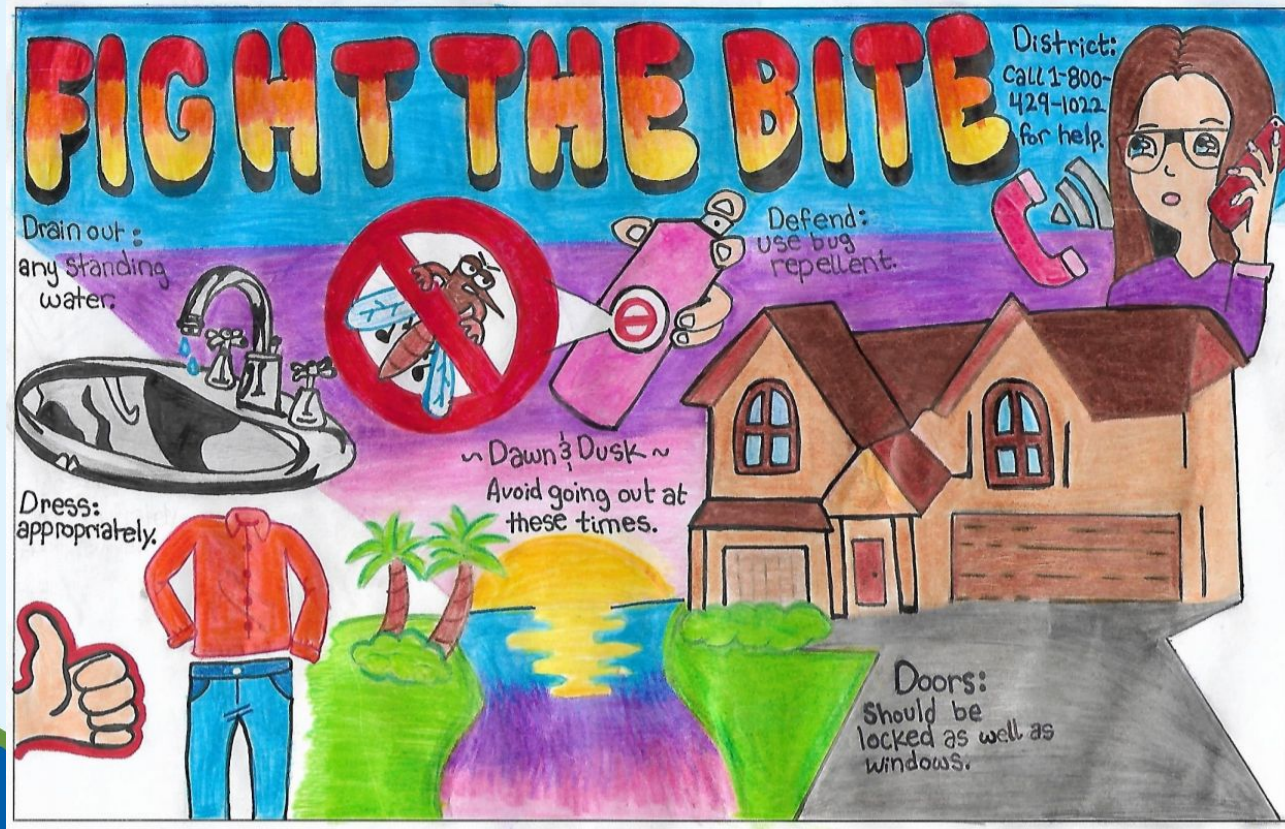 FIGHT THE BITE
District:
Call 1-800-
429-1022
for help.
Drain out:
any standing
water.
Defend:
use bug
repellent.
~ Dawn & Dusk ~
Avoid going out at
these times.
Dress:
appropriately.
Doors:
Should be
locked as well as
windows.